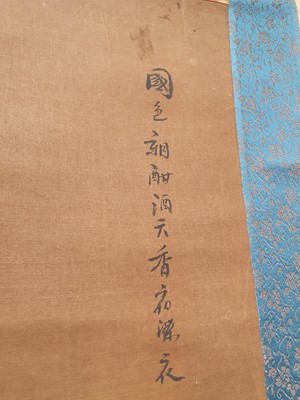 國色朝酣酒天香夜染衣